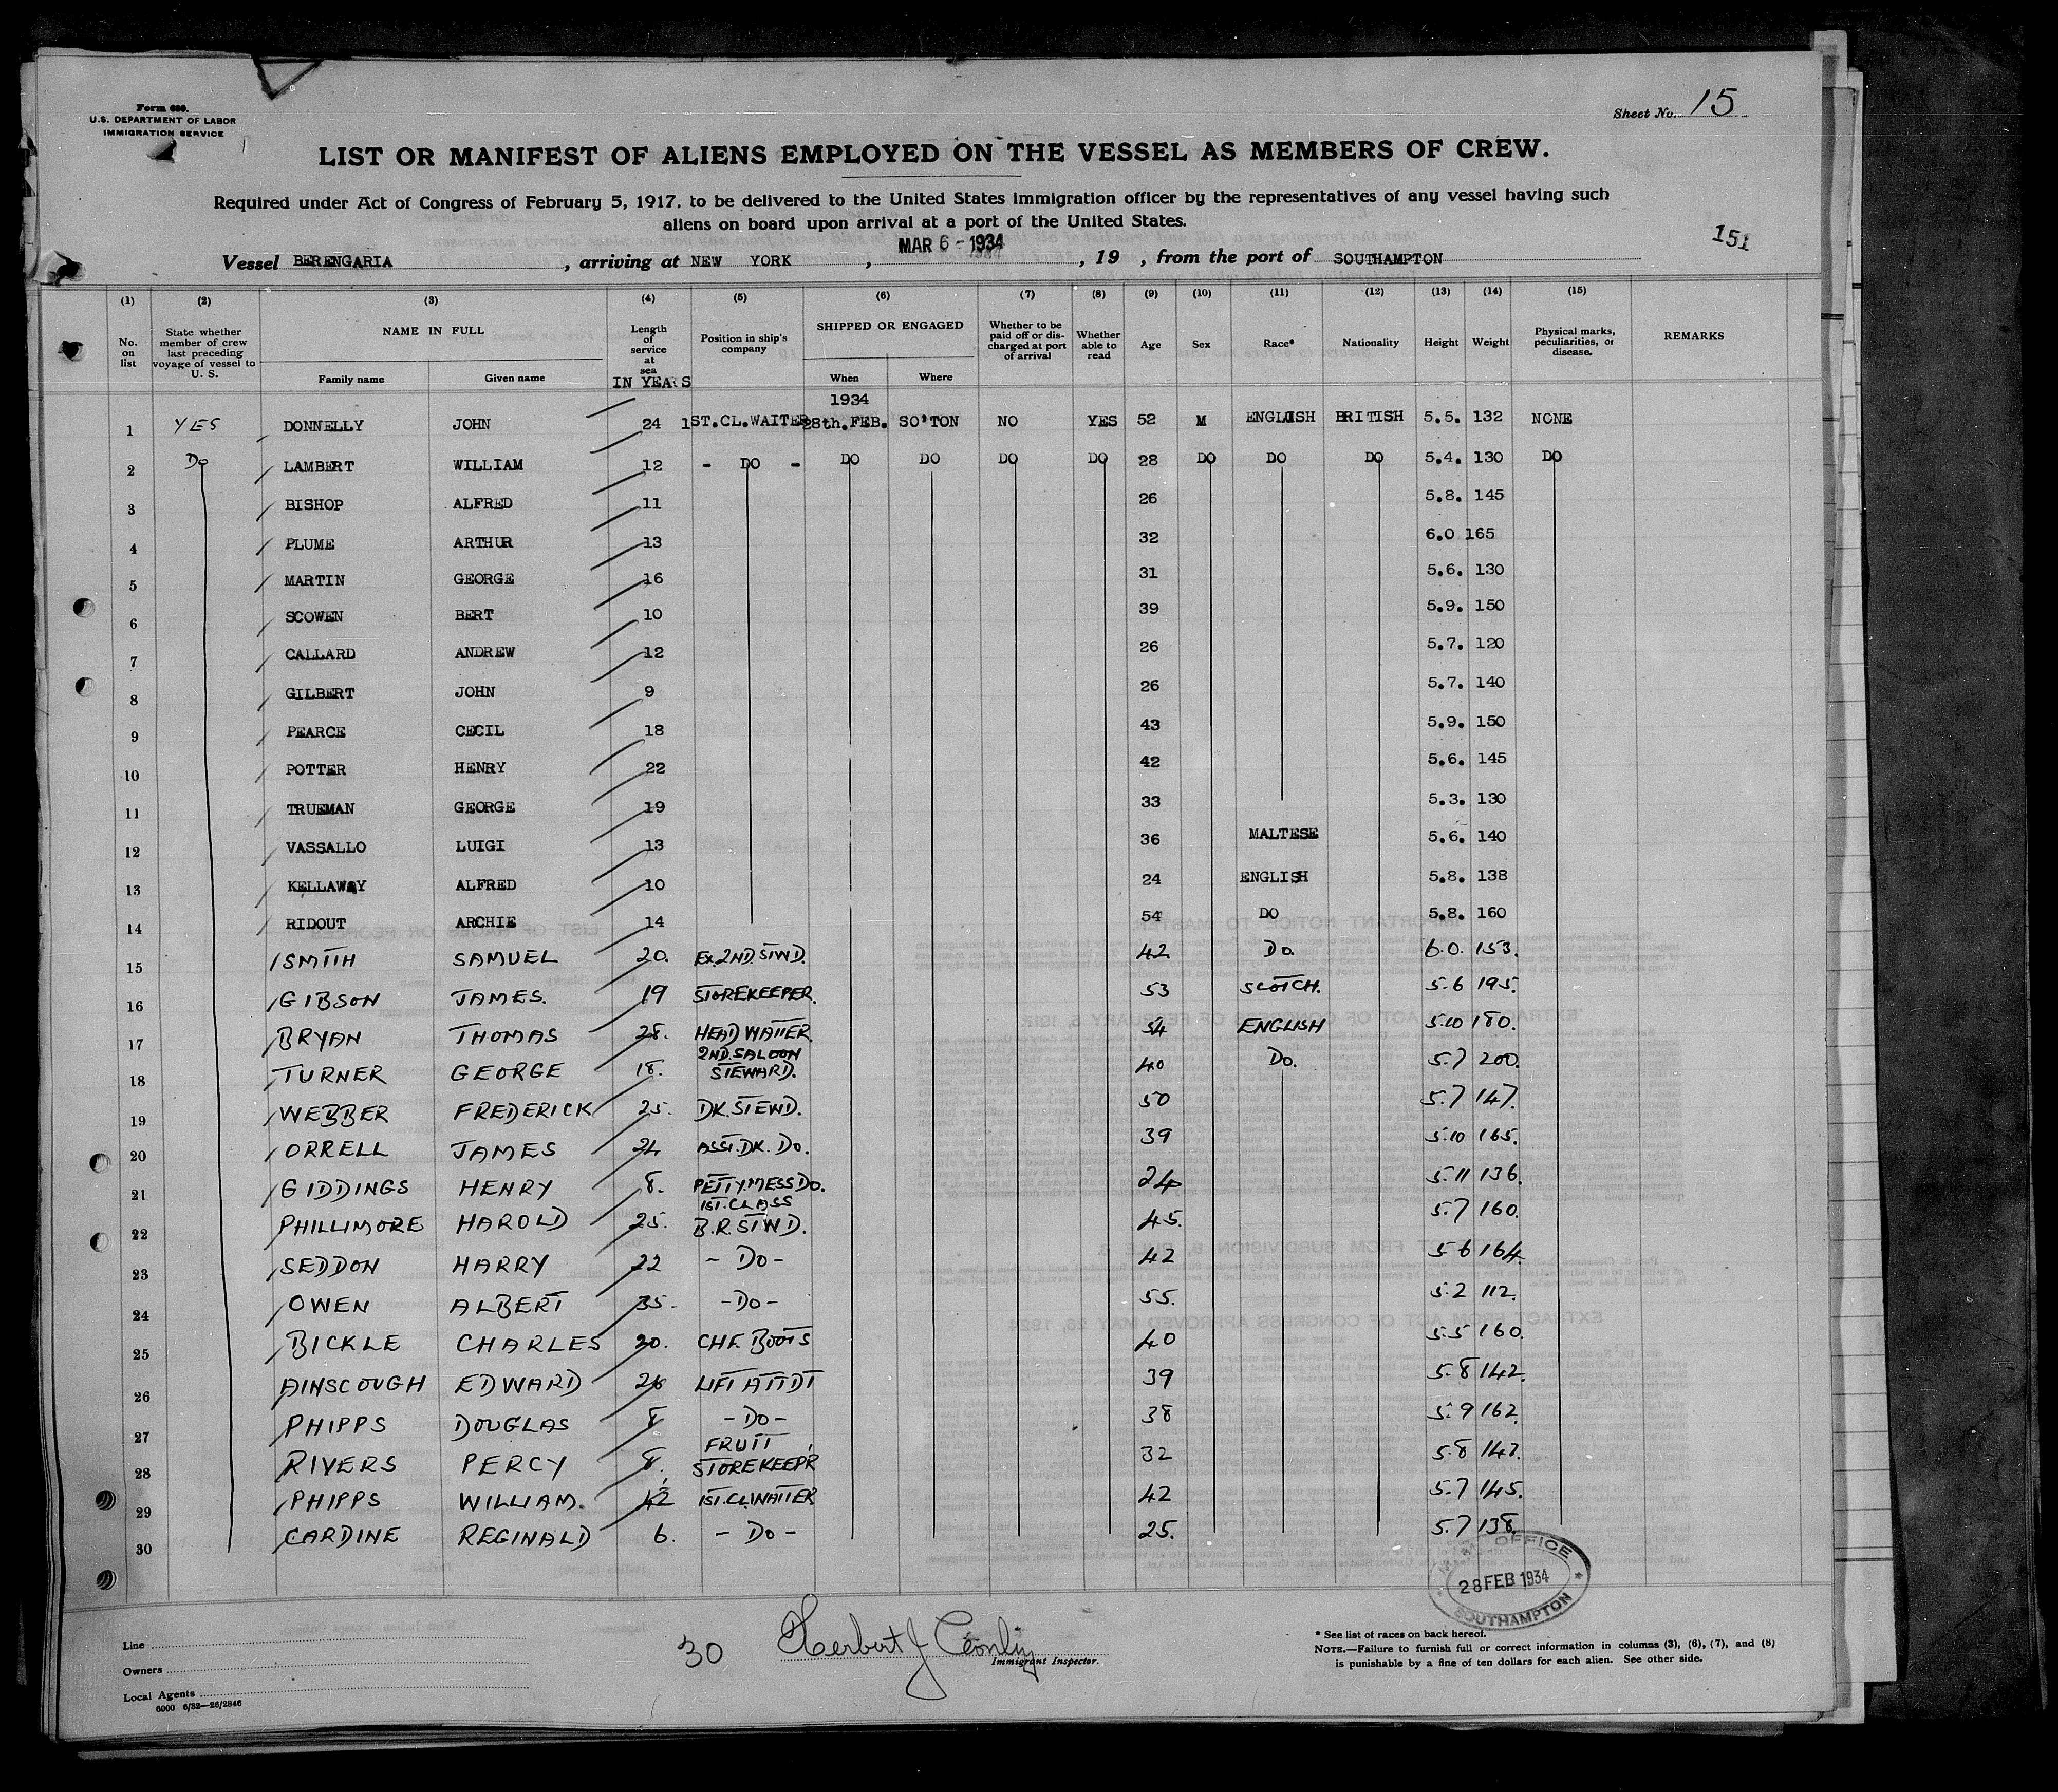 Form 689.
U.S. DEPARTMENT OF LABOR
IMMIGRATION SERVICE
Sheet No. 15
LIST OR MANIFEST OF ALIENS EMPLOYED ON THE VESSEL AS MEMBERS OF CREW.
Required under Act of Congress of February 5, 1917, to be delivered to the United States immigration officer by the representatives of any vessel having such
aliens on board upon arrival at a port of the United States.
151
MAR 6 - 1934
Vessel BERENGARIA, arriving at NEW YORK, , 19 , from the port of SOUTHAMPTON
(1) (2) (3) (4) (5) (6) (7) (8) (9) (10) (11) (12) (13) (14) (15)
No. on list State whether member of crew last preceding voyage of vessel to U. S. NAME IN FULL Family name Given name Length of service at sea IN YEARS Position in ship's company SHIPPED OR ENGAGED When Where Whether to be paid off or discharged at port of arrival Whether able to read Age Sex Race* Nationality Height Weight Physical marks, peculiarities, or disease. REMARKS
1934
1 YES DONNELLY JOHN 24 1ST.CL.WAITER 28th.FEB. SO'TON NO YES 52 M ENGLISH BRITISH 5.5. 132 NONE
2 Do LAMBERT WILLIAM 12 - DO - DO DO DO DO 28 DO DO DO 5.4. 130 DO
3 BISHOP ALFRED 11 26 5.8. 145
4 PLUME ARTHUR 13 32 6.0 165
5 MARTIN GEORGE 16 31 5.6. 130
6 SCOWEN BERT 10 39 5.9. 150
7 CALLARD ANDREW 12 26 5.7. 120
8 GILBERT JOHN 9 26 5.7. 140
9 PEARCE CECIL 18 43 5.9. 150
10 POTTER HENRY 22 42 5.6. 145
11 TRUEMAN GEORGE 19 33 5.3. 130
12 VASSALLO LUIGI 13 36 MALTESE 5.6. 140
13 KELLAWAY ALFRED 10 24 ENGLISH 5.8. 138
14 RIDOUT ARCHIE 14 54 DO 5.8. 160
15 SMITH SAMUEL 20. Ex.2ND.STWD. 42 Do. 6.0. 153.
16 GIBSON JAMES. 19 STOREKEEPER. 53 SCOTCH. 5.6 195.
17 BRYAN THOMAS 28. HEAD WAITER. 54 ENGLISH 5.10 180.
18 TURNER GEORGE 18. 2ND.SALOON STEWARD. 40 Do. 5.7 200.
19 WEBBER FREDERICK 25. DK.STEWD. 50 5.7 147.
20 ORRELL JAMES 24 ASST.DK.DO. 39 5.10 165.
21 GIDDINGS HENRY 8. PETTY.MESS DO. 24 5.11 136.
22 PHILLIMORE HAROLD 25. 1ST.CLASS B.R.STWD. 45. 5.7 160.
23 SEDDON HARRY 22 - Do - 42 5.6 164.
24 OWEN ALBERT 35. - Do - 55. 5.2 112.
25 BICKLE CHARLES 20. CHF. BOOTS 40 5.5 160.
26 AINSCOUGH EDWARD 26 LIFT ATTDT 39 5.8 142.
27 PHIPPS DOUGLAS 8 - Do - 38 5.9 162.
28 RIVERS PERCY 8. FRUIT STOREKEEPR 32 5.8 147.
29 PHIPPS WILLIAM. 12 1ST.CL.WAITER 42 5.7 145.
30 CARDINE REGINALD 6. - Do - 25. 5.7 138.
OFFICE
28 FEB 1934
SOUTHAMPTON
Line
Owners
Local Agents
6000 6/32—26/2846
30
Immigrant Inspector.
* See list of races on back hereof.
NOTE.—Failure to furnish full or correct information in columns (3), (6), (7), and (8)
is punishable by a fine of ten dollars for each alien. See other side.